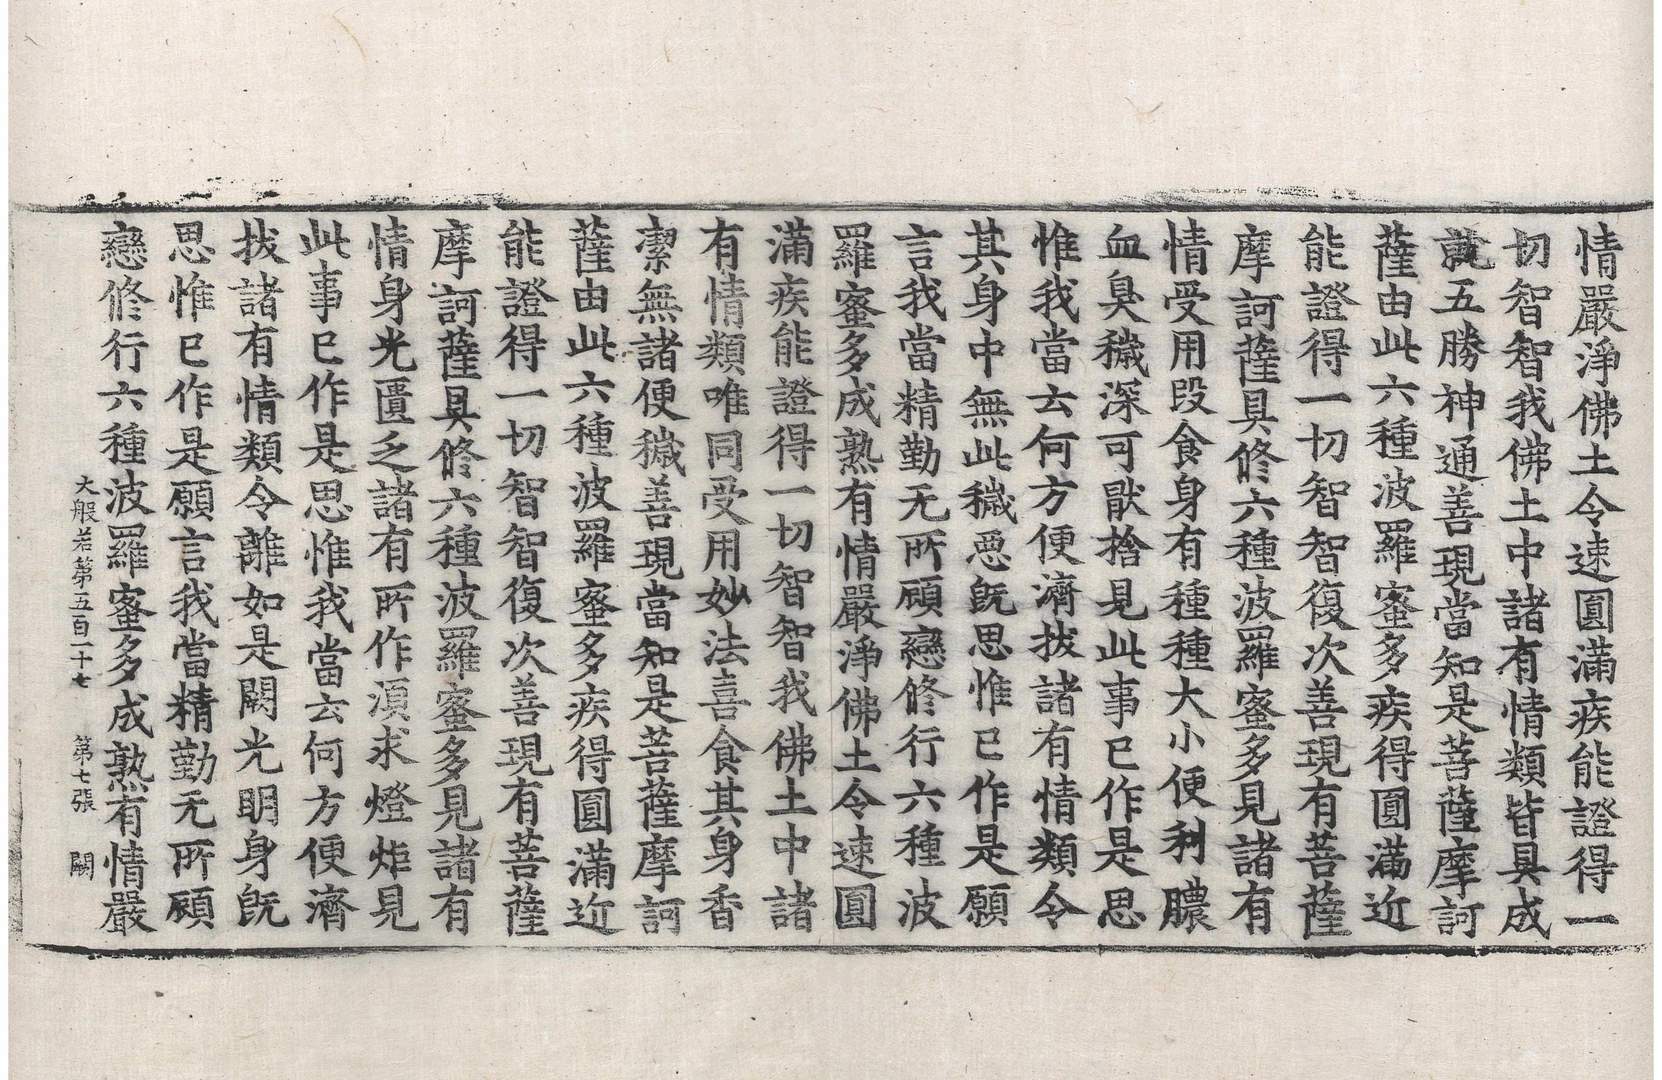 情嚴淨佛土令速圓滿疾能證得一
切智智我佛土中諸有情類皆具成
就五勝神通善現當知是菩薩摩訶
薩由此六種波羅蜜多疾得圓滿近
能證得一切智智復次善現有菩薩
摩訶薩具修六種波羅蜜多見諸有
情受用段食身有種種大小便利膿
血臭穢深可猒捨見此事已作是思
惟我當云何方便濟拔諸有情類令
其身中無此穢惡既思惟已作是願
言我當精勤无所顧戀修行六種波
羅蜜多成熟有情嚴淨佛土令速圓
滿疾能證得一切智智我佛土中諸
有情類唯同受用妙法喜食其身香
潔無諸便穢善現當知是菩薩摩訶
薩由此六種波羅蜜多疾得圓滿近
能證得一切智智復次善現有菩薩
摩訶薩具修六種波羅蜜多見諸有
情身光匱乏諸有所作湏求燈炬見
此事已作是思惟我當云何方便濟
拔諸有情類令離如是闕光明身既
思惟已作是願言我當精勤无所顧
戀修行六種波羅蜜多成熟有情嚴
大般若第五百一十七 第七張 闕